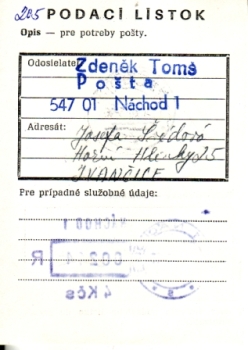 205 PODACÍ LÍSTOK
Opis — pre potreby pošty.
Odosielateľ:
Zdeněk Toms
Pošta
547 01 Náchod 1
Adresát:
Josefa
Horní
IVANČICE
Pre prípadné služobné údaje:
NÁCHOD 1
R
4 Kčs